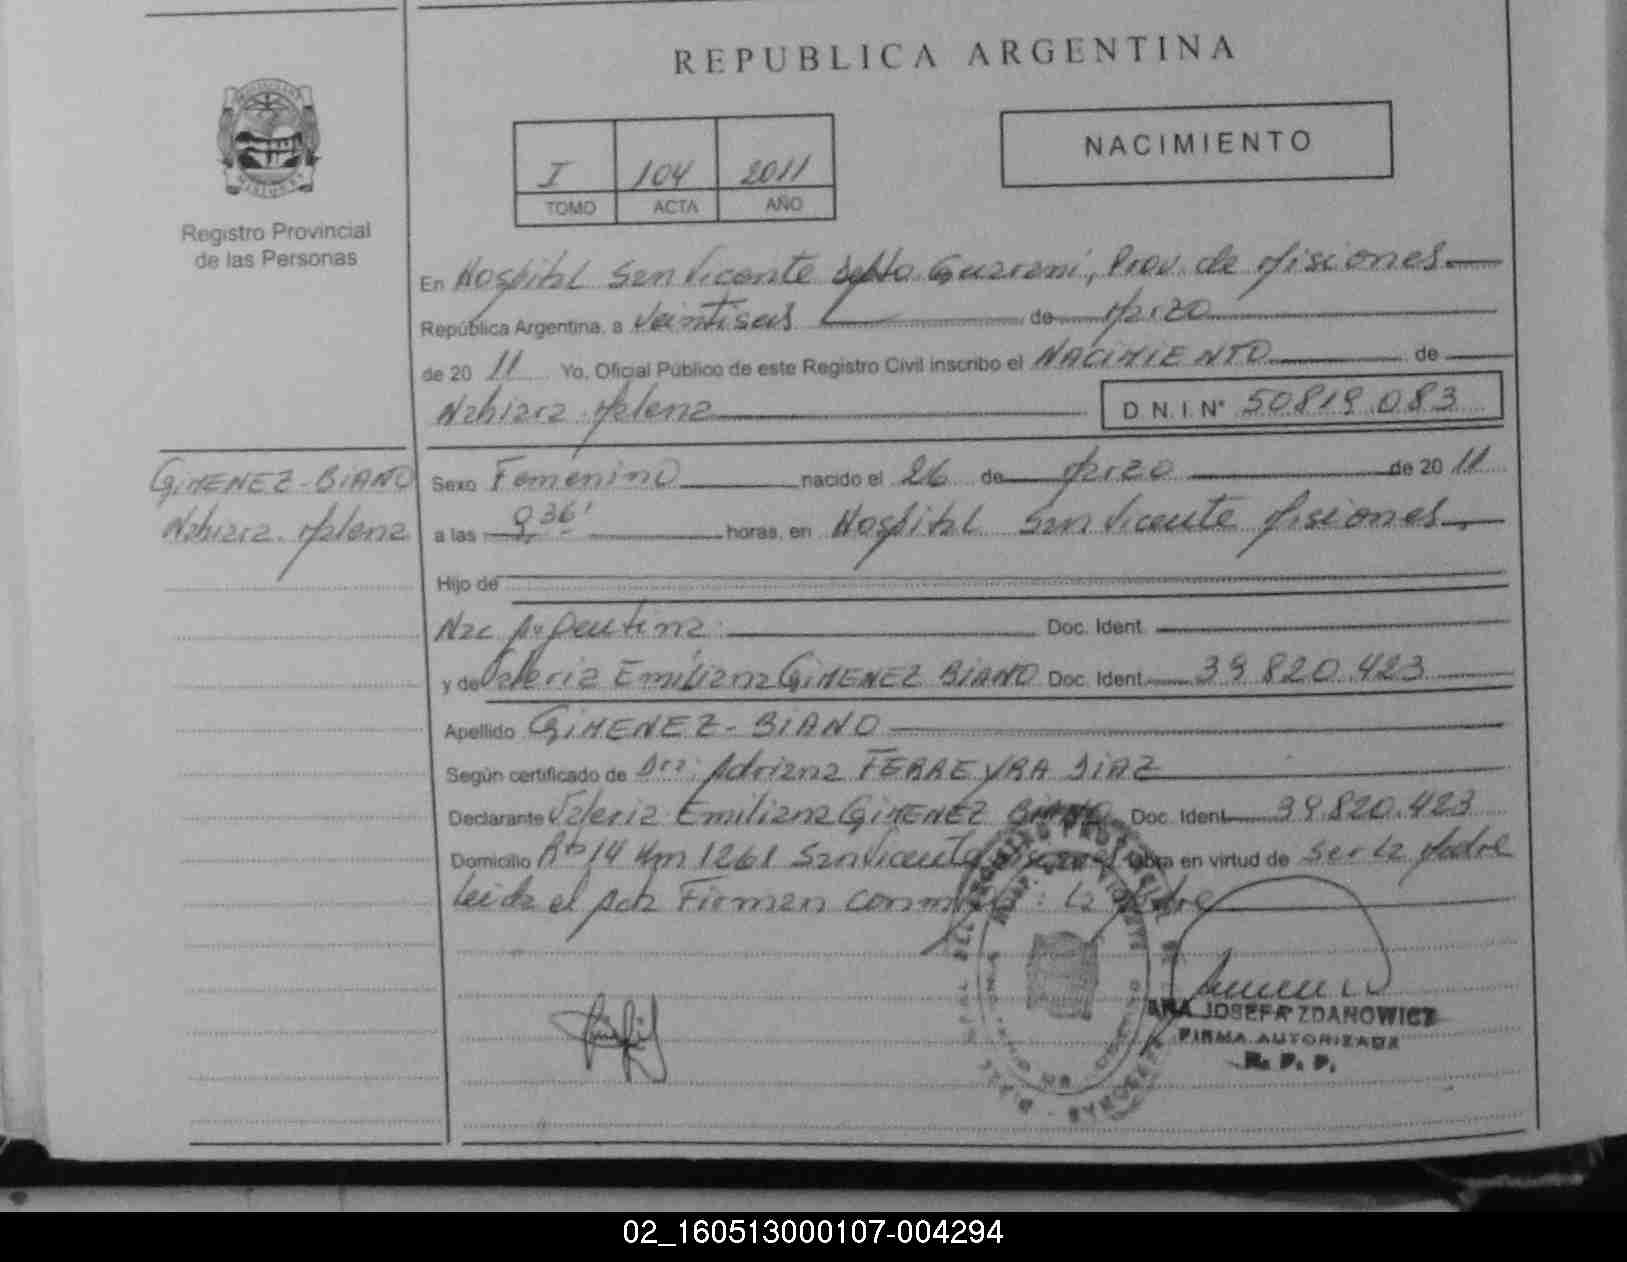 REPUBLICA ARGENTINA
NACIMIENTO
I 104 2011
TOMO ACTA AÑO
Registro Provincial
de las Personas
En Hospital San Vicente Depto Guarani, Prov. de Misiones
República Argentina, a Veintiseis de Marzo
de 20 11 Yo, Oficial Público de este Registro Civil inscribo el NACIMIENTO de
Nahiara Malena D.N.I. Nº 50819.083
GIMENEZ-BIANO
Nahiara Malena
Sexo Femenino nacido el 26 de Marzo de 20 11
a las 9,36' horas, en Hospital San Vicente Misiones
Hijo de
Nac Argentina Doc. Ident.
y de Valeria Emiliana GIMENEZ BIANO Doc. Ident. 39.820.423
Apellido GIMENEZ-BIANO
Según certificado de Dra: Adriana FERREYRA DIAZ
Declarante Valeria Emiliana GIMENEZ BIANO Doc. Ident. 39.820.423
Domicilio 14 Km 1261 San Vicente Misiones Obra en virtud de ser la Madre
Leida el Acta Firman conmigo: la Madre
ANA JOSEFA ZDANOWICZ
FIRMA AUTORIZADA
R. P. P.
02_160513000107-004294